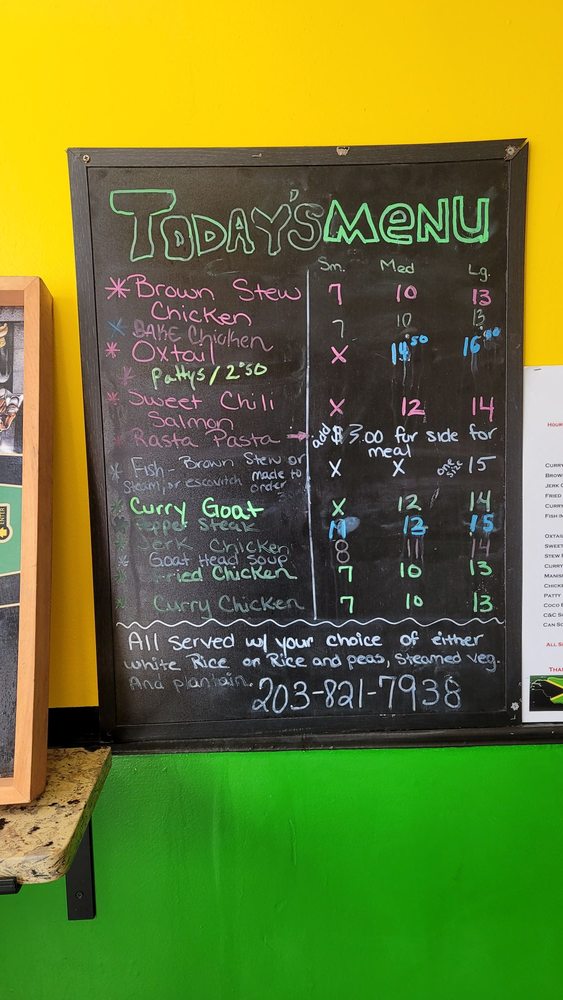 TODAY'S MENU
Sm. Med Lg.
*Brown Stew 7 10 13
Chicken
*BAKE Chicken 7 10 13
*Oxtail X 14.50 16.50
*Pattys/2.50
*Sweet Chili X 12 14
Salmon
*Rasta Pasta → add $3.00 for side for
meal
*Fish- Brown Stew or X X one size 15
Steam, or escovitch made to
order
*Curry Goat X 12 14
Pepper Steak 12 15
*Jerk Chicken 8 11 14
*Goat Head Soup
*Fried Chicken 7 10 13
*Curry Chicken 7 10 13
All served w/ your choice of either
white Rice or Rice and peas, Steamed veg.
And plantain. 203-821-7938
HOUR
CURRY
BROW
JERK C
FRIED
CURRY
FISH
OXTA
SWEET
STEW
CURRY
MANIS
CHICK
PATTY
COCO
C&C S
CAN SO
ALL S
THA